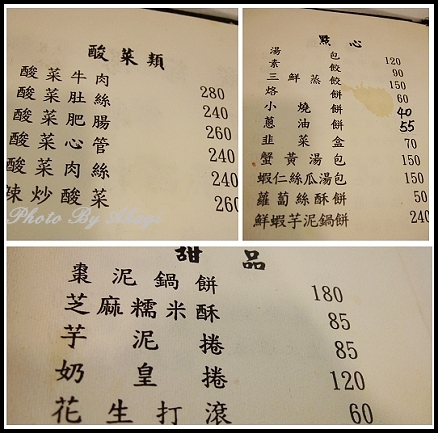 酸菜類
酸菜牛肉 280
酸菜肚絲 240
酸菜肥腸 260
酸菜心管 240
酸菜肉絲 240
炒酸菜 260
Photo By
點心
湯包 120
素餃 90
三鮮蒸餃 150
烙餅 60
小燒餅 40
蔥油餅 55
韭菜盒 70
蟹黃湯包 150
蝦仁絲瓜湯包 150
蘿蔔絲酥餅 50
鮮蝦芋泥鍋餅 240
甜品
棗泥鍋餅 180
芝麻糯米酥 85
芋泥捲 85
奶皇捲 120
花生打滾 60